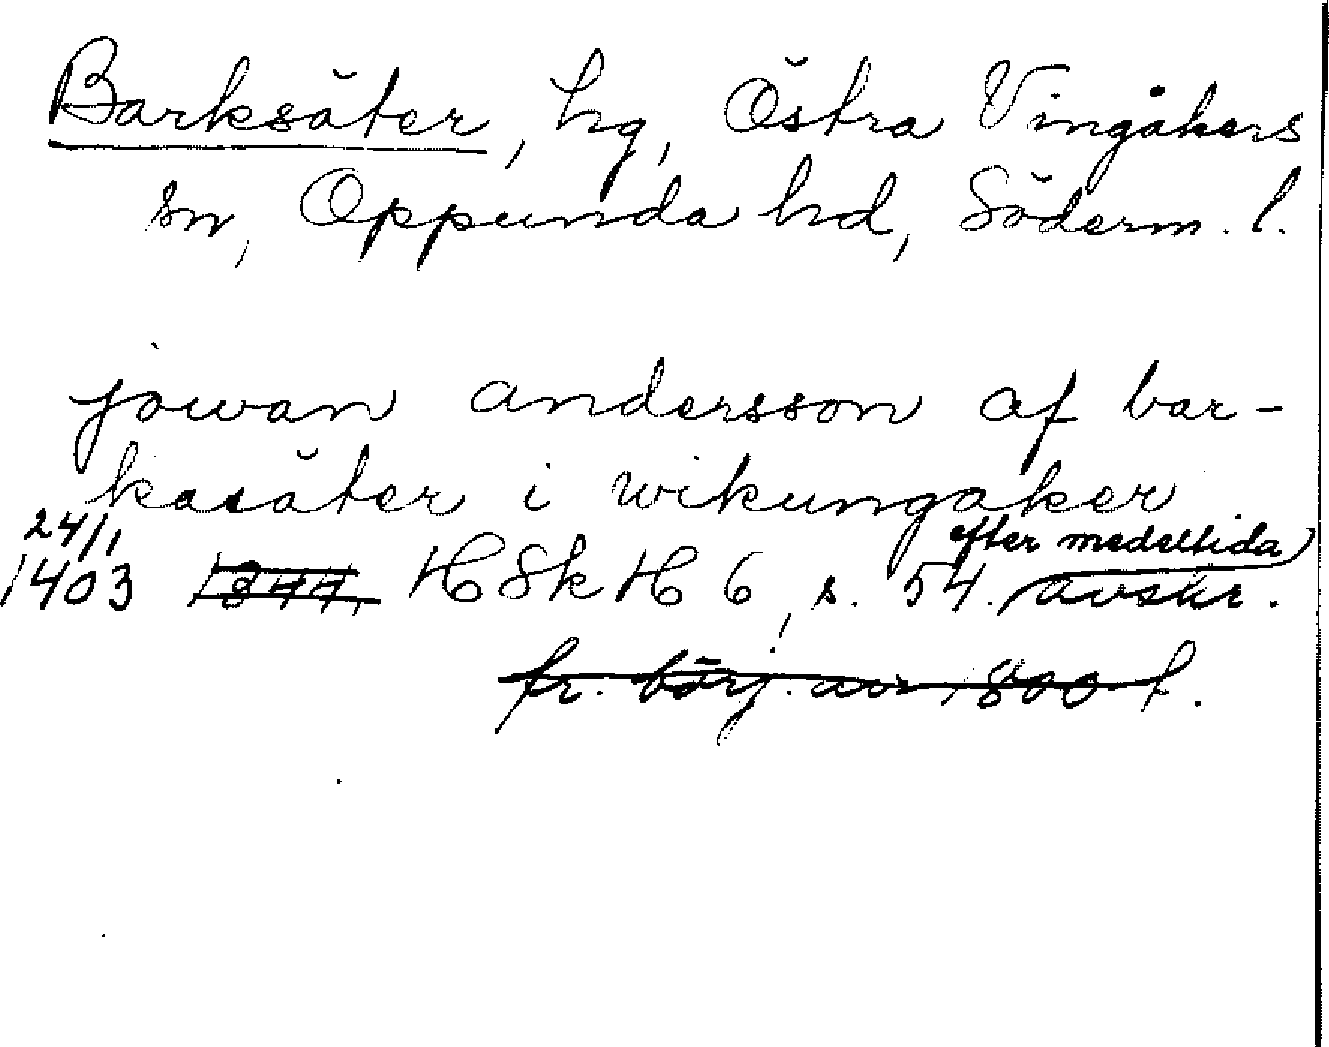 Barksäter, hg, Östra Vingåkers
sn, Oppunda hd, Söderm. l.
jowan andersson af bar-
kasäter i wikungaker
24/1
efter medeltida
1403 1344, H Sk H 6, s. 54. avskr.
fr. börj. av 1800-t.